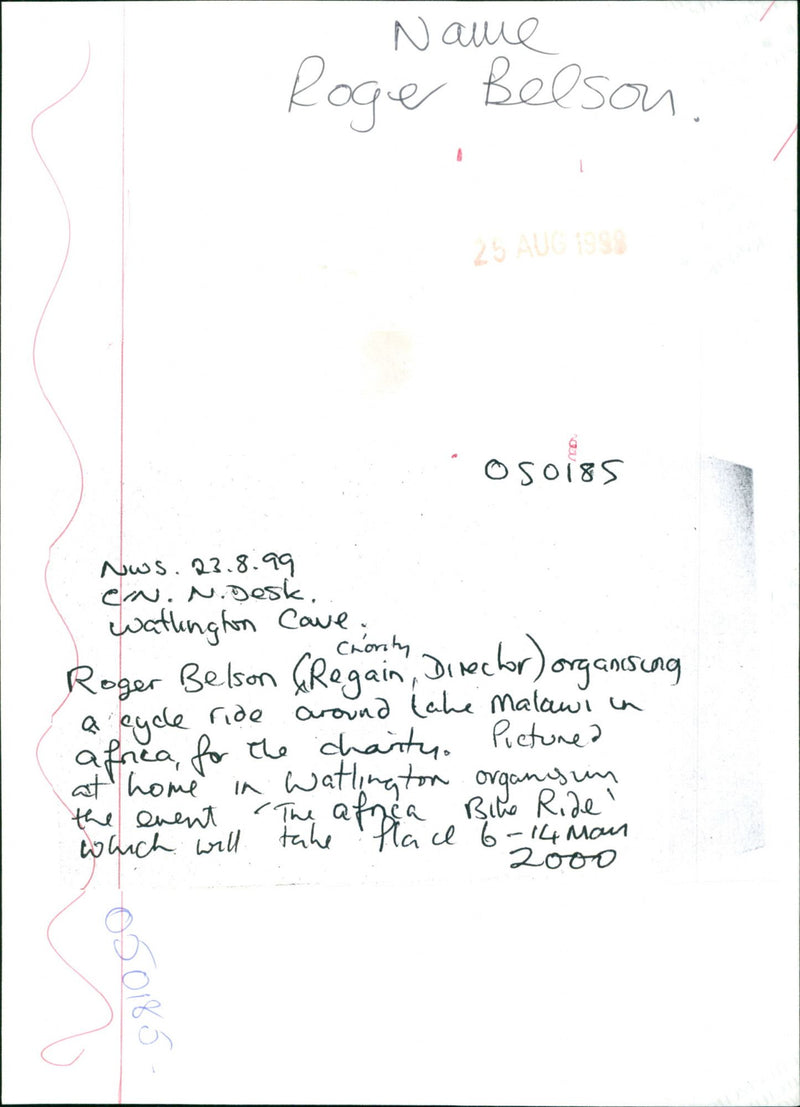 Name
Roger Belson.
25 AUG 1999
050185
NWS. 23.8.99
C/N. N.Desk.
Watlington Cave.
Charity
Roger Belson (Regain, Director) organising
a cycle ride around Lake Malawi in
Africa, for the charity. Pictured
at home in Watlington organising
the event 'The Africa Bike Ride'
which will take place 6-14 May
2000
050185